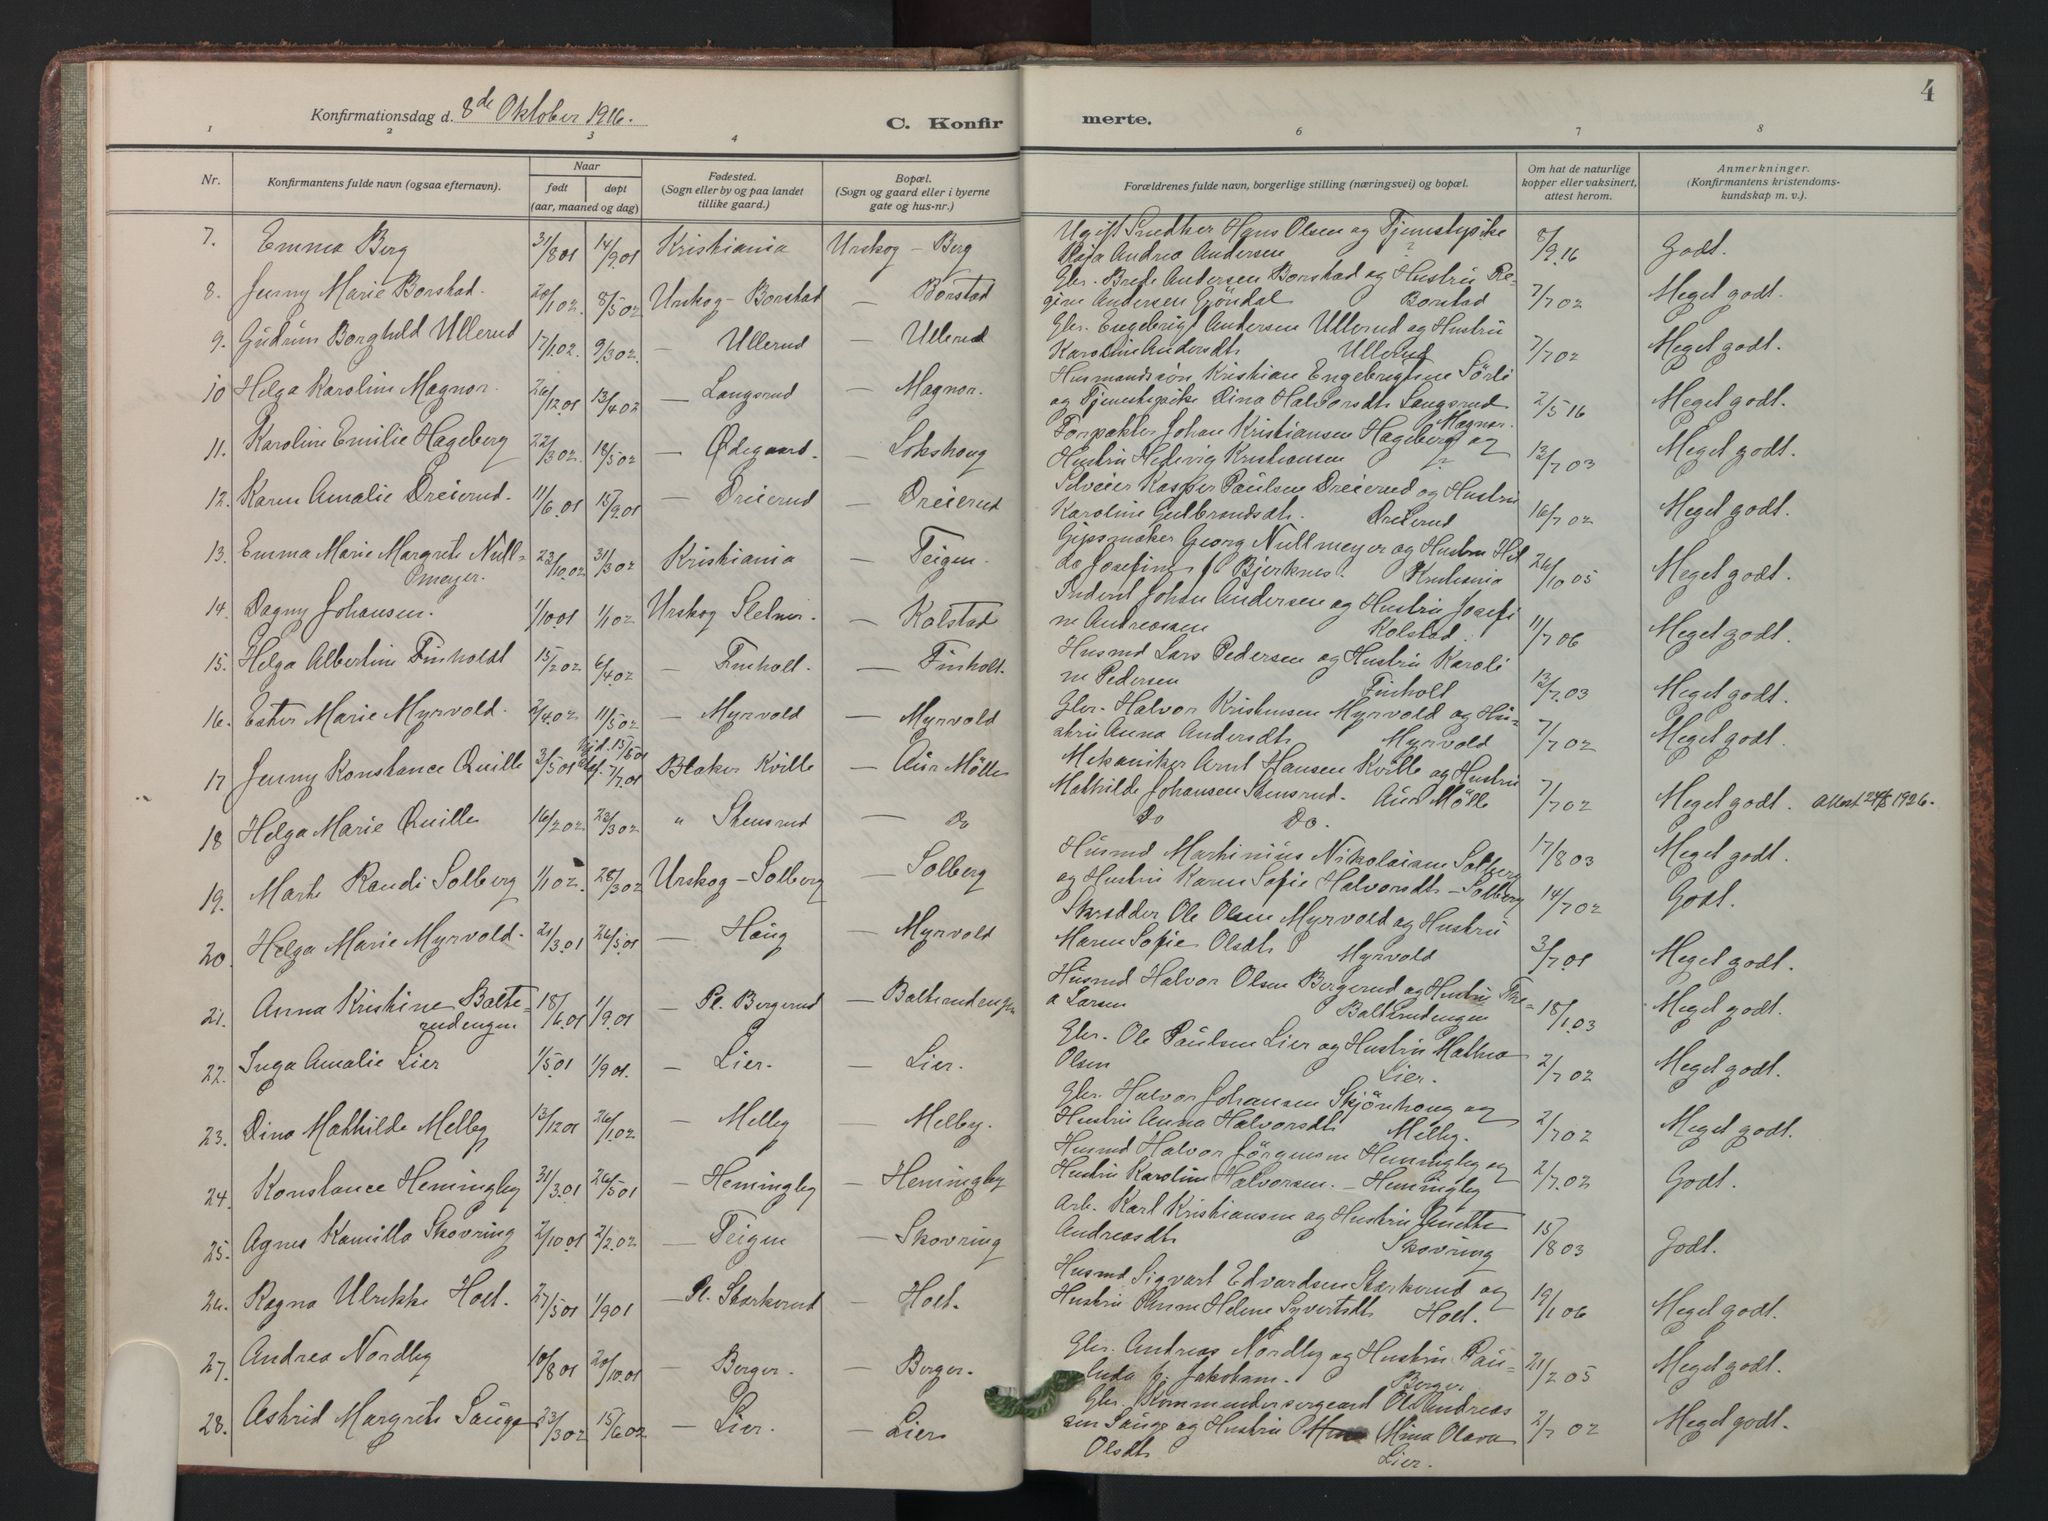 4
Konfirmationsdag d. 8de Oktober 1916.
C. Konfirmerte.
1 2 3 4 6 7 8
Nr.
Konfirmantens fulde navn (ogsaa efternavn).
Naar
født
døpt
(aar, maaned og dag)
Fødested.
(Sogn eller by og paa landet
tillike gaard.)
Bopæl.
(Sogn og gaard eller i byerne
gate og hus-nr.)
Forældrenes fulde navn, borgerlige stilling (næringsvei) og bopæl.
Om hat de naturlige
kopper eller vaksinert,
attest herom.
Anmerkninger.
(Konfirmantens kristendoms-
kundskap m. v.).
7. Emma Berg 31/8 01 14/9 01 Kristiania Urskog – Berg Ugift Snedker Hans Olsen og Tjenestepike
Andrea Andersen ? 8/9 16 Godt.
8. Jenny Marie Borstad. 20/1 02. 8/5 02 Urskog – Borstad — Borstad Gbr. Brede Andersen Borstad og Hustru Re-
gine Andersen Borstad 7/7 02 Meget godt.
9. Gudrun Borghild Ullerud 17/1 02. 9/3 02. — Ullerud — Ullerud Gbr. Engebrigt Andersen Ullerud og Hustru
Karoline Andersdt. Ullerud 7/7 02 Meget godt.
10 Helga Karoline Magnor. 26/12 01 13/4 02 — Langsrud — Magnor. Husmandssön Kristian Engebregtsene Sörli
og Tjenestepike Dina Halvorsdt. Langsrud Magnor. 2/5 16 Meget godt.
11. Karoline Emilie Hageberg 22/3 02. 18/5 02 — Ødegaard. — Lokshoug Forpakter Johan Kristiansen Hageberg og
Hustru Hedevig Kristiansen 13/7 03 Meget godt.
12. Karen Amalie Dreierud. 11/6 01 15/9 01 — Dreierud — Dreierud Selveier Kasper Paulsen Dreierud og Hustru
Karoline Gulbrandsdt. Dreierud 16/7 02 Meget godt.
13. Emma Marie Margrete Null-
meyer. 23/10 02 31/3 02 Kristiania — Teigen. Gipsmaker Georg Nullmeyer og Hustru Hil
da Josefine Bjerknes. Kristiania 26/10 05 Meget godt.
14. Dagny Johansen. 1/10 01 1/1 02 Urskog Sletner. — Kolstad Inderst Johan Andersen og Hustru Josefi
ne Andreassen Kolstad. 11/7 06 Meget godt.
15. Helga Albertine Finholdt 15/2 02 6/4 02 — Finholt. — Finholt. Husmd Lars Pedersen og Hustru Karoli
ne Pedersen Finholt 13/7 03 Meget godt.
16. Ester Marie Myrvold. 2/4 02 11/5 02 — Myrvold — Myrvold Gbr. Halvor Kristensen Myrvold og Hu-
stru Anna Andersdt. Myrvold 7/7 02 Meget godt.
17 Jenny Konstance Quille 3/5 01 hjd. 15/5 01 7/7 01 Blaker Kville — Aur Mölle Mekaniker Arnt Hansen Kville og Hustru
Mathilde Johansen Stensrud. Aur Mölle 7/7 02 Meget godt. Attest 24/8 1926.
18 Helga Marie Quille 16/2 02 23/3 02 " Stensrud — Do Do Do. 17/8 03 Meget godt.
19. Marte Randi Solberg 1/1 02. 28/3 02 Urskog – Solberg — Solberg Husmd Martinius Nikolaisen Solberg
og Hustru Karen Sofie Halvorsdt. – Solberg 14/7 02 Godt.
20. Helga Marie Myrvold. 21/3 01 26/5 01 — Haug — Myrvold Skrædder Ole Olsen Myrvold og Hustru
Maren Sofie Olsdt. Myrvold 3/7 01 Meget godt.
21. Anna Kristine Balte-
rudengen 18/6 01 1/9 01 — Pl. Bergerud — Balterudengen Husmd Halvor Olsen Bergerud og Hustru The-
a Larsen Balterudengen 18/1 03 Meget godt.
22. Inga Amalie Lier 1/5 01 1/9 01. — Lier. — Lier. Gbr. Ole Paulsen Lier og Hustru Mathea
Olsen Lier. 2/7 02 Meget godt.
23. Dina Mathilde Melby 13/12 01 26/1 02 — Melby — Melby. Gbr. Halvor Johansen Skjönhoug og
Hustru Anna Halvorsdt. Melby. 2/7 02 Meget godt.
24. Konstance Hemingby 31/3 01 26/5 01 — Hemingby — Hemingby Husmd Halvor Jörgensen Hemingby og
Hustru Karoline Halvorsen. – Hemingby 2/7 02 Godt.
25. Agnes Kamilla Skovring 2/10 01 2/2 02 — Teigen — Skovring Arb. Karl Kristiansen og Hustru Anette
Andreasdt. Skovring 15/8 03 Godt.
26. Ragna Ulrikke Holt. 27/5 01 1/9 01 — Pl. Starkerud — Holt. Husmd Sigvart Edvardsen Starkerud og
Hustru Anne Helene Syvertsdt. Holt. 19/1 06 Meget godt.
27. Andrea Nordby 10/8 01 20/10 01 — Berger. — Berger. Gbr. Andreas Nordby og Hustru Pau-
lida f. Jakobsen. Berger 21/2 05 Meget godt.
28. Astrid Margrete Sauge 23/3 02 15/6 02 — Lier. — Lier Gbr. Kommandersergeant Ole Andreas
sen Sauge og Hustru Mina Olava
Olsdt. Lier. 2/7 02 Meget godt.